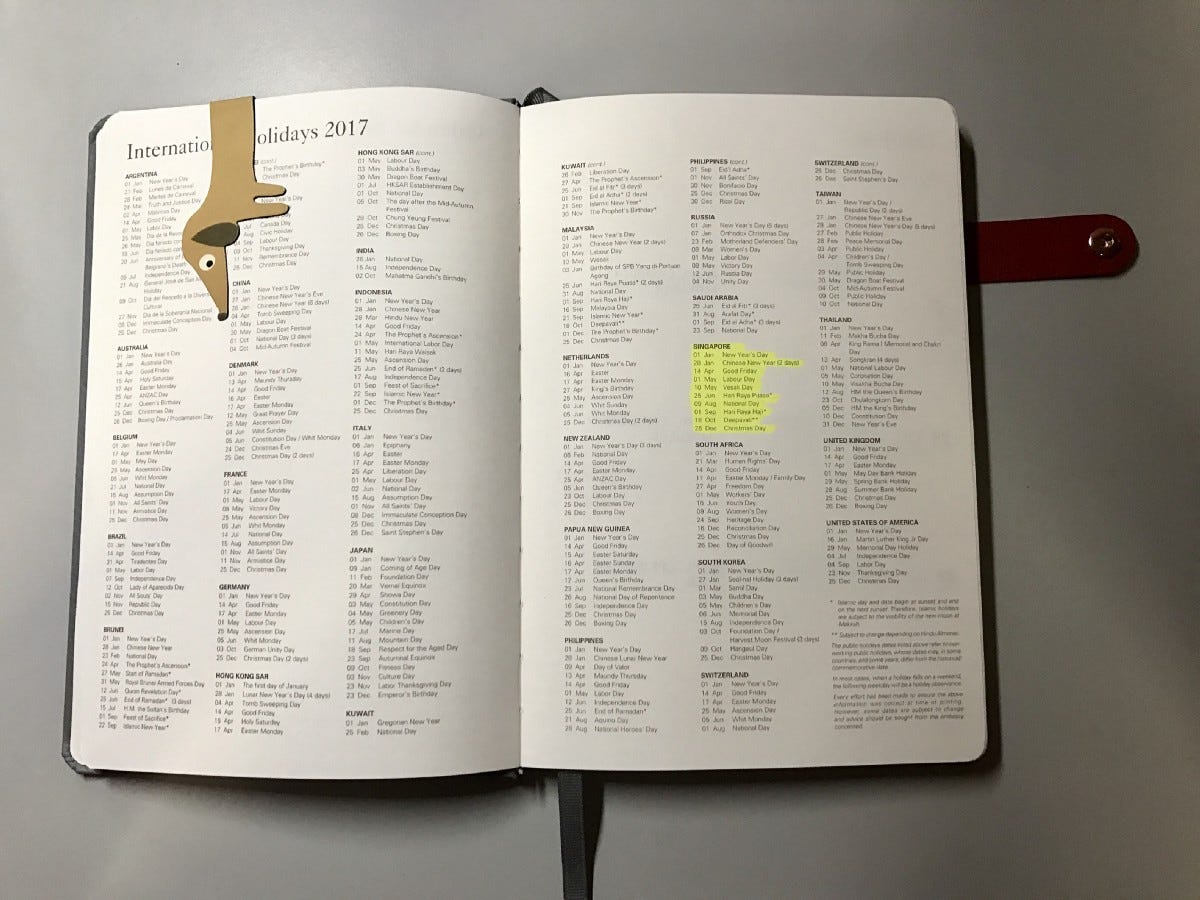 Internatio olidays 2017
ARGENTINA
01 Jan New Year's Day
27 Feb Lunes de Carnaval
28 Feb Martes de Carnaval
24 Mar Truth and Justice Day
02 Apr Malvinas Day
14 Apr Good Friday
01 May Labor Day
25 May
20 Jun
Belgrano's Death
Independence Day
21 Aug General José de San
Holiday
09 Oct Día del Respeto a la Diversi
Cultural
27 Nov Día de la Soberanía Nacional
08 Dec Immaculate Conception Day
25 Dec Christmas Day
AUSTRALIA
01 Jan New Year's Day
26 Jan Australia Day
14 Apr Good Friday
15 Apr Holy Saturday
17 Apr Easter Monday
25 Apr ANZAC Day
12 Jun Queen's Birthday
25 Dec Christmas Day
26 Dec Boxing Day / Proclamation Day
BELGIUM
01 Jan New Year's Day
17 Apr Easter Monday
01 May May Day
25 May Ascension Day
05 Jun Whit Monday
21 Jul National Day
15 Aug Assumption Day
01 Nov All Saints' Day
11 Nov Armistice Day
25 Dec Christmas Day
BRAZIL
01 Jan New Year's Day
14 Apr Good Friday
21 Apr Tiradentes Day
01 May Labor Day
07 Sep Independence Day
12 Oct Lady of Aparecida Day
02 Nov All Souls' Day
15 Nov Republic Day
25 Dec Christmas Day
BRUNEI
01 Jan New Year's Day
28 Jan Chinese New Year
23 Feb National Day
24 Apr The Prophet's Ascension*
27 May Start of Ramadan*
31 May Royal Brunei Armed Forces Day
12 Jun Quran Revelation Day*
25 Jun End of Ramadan* (3 days)
15 Jul H.M. the Sultan's Birthday
01 Sep Feast of Sacrifice*
22 Sep Islamic New Year*
(cont.)
The Prophet's Birthday*
Christmas Day
New Year's Day
Jul Canada Day
Aug Civic Holiday
Sep Labour Day
Oct Thanksgiving Day
11 Nov Remembrance Day
25 Dec Christmas Day
CHINA
01 Jan New Year's Day
27 Jan Chinese New Year's Eve
28 Jan Chinese New Year (6 days)
04 Apr Tomb Sweeping Day
01 May Labour Day
30 May Dragon Boat Festival
01 Oct National Day (3 days)
04 Oct Mid-Autumn Festival
DENMARK
01 Jan New Year's Day
13 Apr Maundy Thursday
14 Apr Good Friday
16 Apr Easter
17 Apr Easter Monday
12 May Great Prayer Day
25 May Ascension Day
04 Jun Whit Sunday
05 Jun Constitution Day / Whit Monday
24 Dec Christmas Eve
25 Dec Christmas Day (2 days)
FRANCE
01 Jan New Year's Day
17 Apr Easter Monday
01 May Labour Day
08 May Victory Day
25 May Ascension Day
05 Jun Whit Monday
14 Jul National Day
15 Aug Assumption Day
01 Nov All Saints' Day
11 Nov Armistice Day
25 Dec Christmas Day
GERMANY
01 Jan New Year's Day
14 Apr Good Friday
17 Apr Easter Monday
01 May Labour Day
25 May Ascension Day
05 Jun Whit Monday
03 Oct German Unity Day
25 Dec Christmas Day (2 days)
HONG KONG SAR
01 Jan The first day of January
28 Jan Lunar New Year's Day (4 days)
04 Apr Tomb Sweeping Day
14 Apr Good Friday
15 Apr Holy Saturday
17 Apr Easter Monday
HONG KONG SAR (cont.)
01 May Labour Day
03 May Buddha's Birthday
30 May Dragon Boat Festival
01 Jul HKSAR Establishment Day
01 Oct National Day
05 Oct The day after the Mid-Autumn
Festival
28 Oct Chung Yeung Festival
25 Dec Christmas Day
26 Dec Boxing Day
INDIA
26 Jan National Day
15 Aug Independence Day
02 Oct Mahatma Gandhi's Birthday
INDONESIA
01 Jan New Year's Day
28 Jan Chinese New Year
28 Mar Hindu New Year
14 Apr Good Friday
24 Apr The Prophet's Ascension*
01 May International Labor Day
11 May Hari Raya Waisak
25 May Ascension Day
25 Jun End of Ramadan* (2 days)
17 Aug Independence Day
01 Sep Feast of Sacrifice*
21 Sep Islamic New Year*
01 Dec The Prophet's Birthday*
25 Dec Christmas Day
ITALY
01 Jan New Year's Day
06 Jan Epiphany
16 Apr Easter
17 Apr Easter Monday
25 Apr Liberation Day
01 May Labour Day
02 Jun National Day
15 Aug Assumption Day
01 Nov All Saints' Day
08 Dec Immaculate Conception Day
25 Dec Christmas Day
26 Dec Saint Stephen's Day
JAPAN
01 Jan New Year's Day
09 Jan Coming of Age Day
11 Feb Foundation Day
20 Mar Vernal Equinox
29 Apr Showa Day
03 May Constitution Day
04 May Greenery Day
05 May Children's Day
17 Jul Marine Day
11 Aug Mountain Day
18 Sep Respect for the Aged Day
23 Sep Autumnal Equinox
09 Oct Fitness Day
03 Nov Culture Day
23 Nov Labor Thanksgiving Day
23 Dec Emperor's Birthday
KUWAIT
01 Jan Gregorian New Year
25 Feb National Day
KUWAIT (cont.)
26 Feb Liberation Day
27 Apr The Prophet's Ascension*
25 Jun Eid al Fitr* (3 days)
01 Sep Eid al Adha* (3 days)
21 Sep Islamic New Year*
30 Nov The Prophet's Birthday*
MALAYSIA
01 Jan New Year's Day
28 Jan Chinese New Year (2 days)
01 May Labour Day
10 May Wesak
03 Jun Birthday of SPB Yang di-Pertuan
Agong
25 Jun Hari Raya Puasa* (2 days)
31 Aug National Day
01 Sep Hari Raya Haji*
16 Sep Malaysia Day
21 Sep Islamic New Year*
18 Oct Deepavali**
01 Dec The Prophet's Birthday*
25 Dec Christmas Day
NETHERLANDS
01 Jan New Year's Day
16 Apr Easter
17 Apr Easter Monday
27 Apr King's Birthday
25 May Ascension Day
04 Jun Whit Sunday
05 Jun Whit Monday
25 Dec Christmas Day (2 days)
NEW ZEALAND
01 Jan New Year's Day (3 days)
06 Feb National Day
14 Apr Good Friday
17 Apr Easter Monday
25 Apr ANZAC Day
05 Jun Queen's Birthday
23 Oct Labour Day
25 Dec Christmas Day
26 Dec Boxing Day
PAPUA NEW GUINEA
01 Jan New Year's Day
14 Apr Good Friday
15 Apr Easter Saturday
16 Apr Easter Sunday
17 Apr Easter Monday
12 Jun Queen's Birthday
23 Jul National Remembrance Day
26 Aug National Day of Repentance
16 Sep Independence Day
25 Dec Christmas Day
26 Dec Boxing Day
PHILIPPINES
01 Jan New Year's Day
28 Jan Chinese Lunar New Year
09 Apr Day of Valor
13 Apr Maundy Thursday
14 Apr Good Friday
01 May Labor Day
12 Jun Independence Day
25 Jun End of Ramadan*
21 Aug Aquino Day
28 Aug National Heroes' Day
PHILIPPINES (cont.)
01 Sep Eid'l Adha*
01 Nov All Saints' Day
30 Nov Bonifacio Day
25 Dec Christmas Day
30 Dec Rizal Day
RUSSIA
01 Jan New Year's Day (5 days)
07 Jan Orthodox Christmas Day
23 Feb Motherland Defenders' Day
08 Mar Women's Day
01 May Labor Day
09 May Victory Day
12 Jun Russia Day
04 Nov Unity Day
SAUDI ARABIA
25 Jun Eid al Fitr* (3 days)
31 Aug Arafat Day*
01 Sep Eid al Adha* (3 days)
23 Sep National Day
SINGAPORE
01 Jan New Year's Day
28 Jan Chinese New Year (2 days)
14 Apr Good Friday
01 May Labour Day
10 May Vesak Day
25 Jun Hari Raya Puasa*
09 Aug National Day
01 Sep Hari Raya Haji*
18 Oct Deepavali**
25 Dec Christmas Day
SOUTH AFRICA
01 Jan New Year's Day
21 Mar Human Rights' Day
14 Apr Good Friday
17 Apr Easter Monday / Family Day
27 Apr Freedom Day
01 May Workers' Day
16 Jun Youth Day
09 Aug Women's Day
24 Sep Heritage Day
16 Dec Reconciliation Day
25 Dec Christmas Day
26 Dec Day of Goodwill
SOUTH KOREA
01 Jan New Year's Day
27 Jan Seol-nal Holiday (3 days)
01 Mar Samil Day
03 May Buddha Day
05 May Children's Day
06 Jun Memorial Day
15 Aug Independence Day
03 Oct Foundation Day /
Harvest Moon Festival (3 days)
09 Oct Hangeul Day
25 Dec Christmas Day
SWITZERLAND
01 Jan New Year's Day
14 Apr Good Friday
17 Apr Easter Monday
25 May Ascension Day
05 Jun Whit Monday
01 Aug National Day
SWITZERLAND (cont.)
25 Dec Christmas Day
26 Dec Saint Stephen's Day
TAIWAN
01 Jan New Year's Day /
Republic Day (2 days)
27 Jan Chinese New Year's Eve
28 Jan Chinese New Year's Day (5 days)
27 Feb Public Holiday
28 Feb Peace Memorial Day
03 Apr Public Holiday
04 Apr Children's Day /
Tomb Sweeping Day
29 May Public Holiday
30 May Dragon Boat Day
04 Oct Mid-Autumn Festival
09 Oct Public Holiday
10 Oct National Day
THAILAND
01 Jan New Year's Day
11 Feb Makha Bucha Day
06 Apr King Rama I Memorial and Chakri
Day
13 Apr Songkran (4 days)
01 May National Labour Day
05 May Coronation Day
10 May Visakha Bucha Day
12 Aug HM the Queen's Birthday
23 Oct Chulalongkorn Day
05 Dec HM the King's Birthday
10 Dec Constitution Day
31 Dec New Year's Eve
UNITED KINGDOM
01 Jan New Year's Day
14 Apr Good Friday
17 Apr Easter Monday
01 May May Day Bank Holiday
29 May Spring Bank Holiday
28 Aug Summer Bank Holiday
25 Dec Christmas Day
26 Dec Boxing Day
UNITED STATES OF AMERICA
01 Jan New Year's Day
16 Jan Martin Luther King Jr Day
29 May Memorial Day Holiday
04 Jul Independence Day
04 Sep Labor Day
23 Nov Thanksgiving Day
25 Dec Christmas Day
* Islamic day and date begin at sunset and end
on the next sunset. Therefore, Islamic holidays
are subject to the visibility of the new moon at
Makkah.
** Subject to change depending on Hindu Almanac.
The public holidays dates listed above refer to non-
working public holidays, whose dates may, in some
countries, and some years, differ from the historical/
commemorative date.
In most cases, when a holiday falls on a weekend,
the following weekday will be a holiday observance.
Every effort had been made to ensure the above
information was correct at time of printing.
However, some dates are subject to change
and advice should be sought from the embassy
concerned.